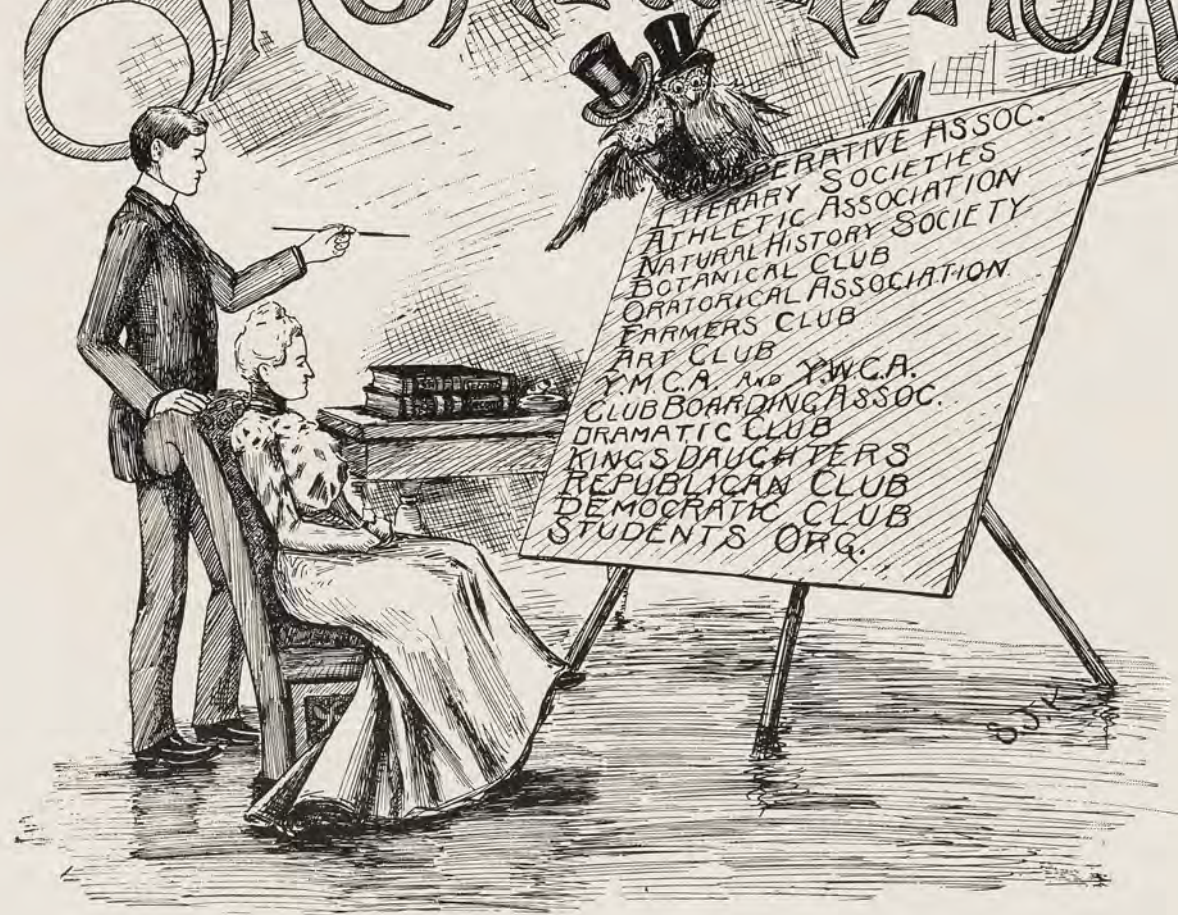 PERATIVE ASSOC.
LITERARY SOCIETIES
ATHLETIC ASSOCIATION
NATURAL HISTORY SOCIETY
BOTANICAL CLUB
ORATORICAL ASSOCIATION
FARMERS CLUB
ART CLUB
Y.M.C.A. AND Y.W.C.A.
CLUB BOARDING ASSOC.
DRAMATIC CLUB
KINGS DAUGHTERS
REPUBLICAN CLUB
DEMOCRATIC CLUB
STUDENTS ORG.